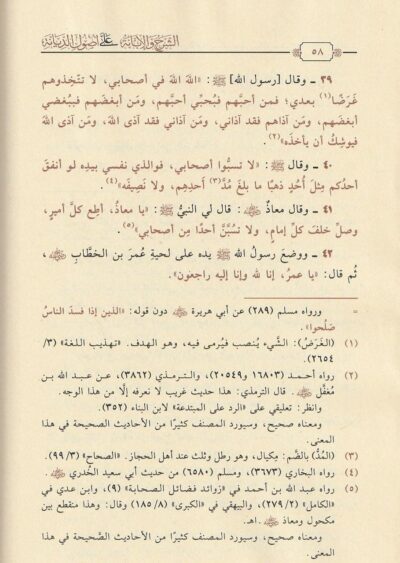 الشرح والإبانة على أصول الديانة
٥٨
٣٩ ـ وقال [رسول الله] ﷺ: «اللهَ اللهَ في أصحابي، لا تتَّخِذوهم
غَرَضًا(١) بعدي؛ فمن أحبَّهم فبحُبِّي أحبَّهم، ومَن أبغضَهم فببُغضي
أبغضَهم، ومَن آذاهم فقد آذاني، ومَن آذاني فقد آذى اللهَ، ومَن آذى اللهَ
فيوشِكُ أن يأخذَه»(٢).
٤٠ ـ وقال ﷺ: «لا تسبُّوا أصحابي، فوالذي نفسي بيدِه لو أنفقَ
أحدُكم مِثلَ أُحُدٍ ذهبًا ما بلغَ مُدَّ(٣) أحدِهم، ولا نَصِيفَه»(٤).
٤١ ـ وقال معاذٌ ﷺ: قال لي النبيُّ ﷺ: «يا معاذُ، أطِع كلَّ أميرٍ،
وصلِّ خلفَ كلِّ إمامٍ، ولا تسُبَّنَّ أحدًا مِن أصحابي»(٥).
٤٢ ـ ووضعَ رسولُ الله ﷺ يده على لحيةِ عُمرَ بن الخطَّابِ ،
ثُم قال: «يا عمرُ، إنا لله وإنا إليه راجعون».
= ورواه مسلم (٢٨٩) عن أبي هريرة دون قوله: «الذين إذا فسدَ الناسُ
صَلُحوا».
(١) (الغَرَضُ): الشَّيء يُنصب فيُرمى فيه، وهو الهدف. «تهذيب اللغة» (٣/
٢٦٥٤).
(٢) رواه أحمد (١٦٨٠٣ و٢٠٥٤٩)، والترمذي (٣٨٦٢)، عن عبد الله بن
مُغفَّل . قال الترمذي: هذا حديث غريب لا نعرفه إلَّا من هذا الوجه.
وانظر: تعليقي على «الرد على المبتدعة» لابن البناء (٣٥٢).
ومعناه صحيح، وسيورد المصنف كثيرًا من الأحاديث الصحيحة في هذا
المعنى.
(٣) (المُدُّ) بالضَّم: مِكيال، وهو رطل وثلث عند أهل الحجاز. «الصحاح» (٣/ ٩٩).
(٤) رواه البخاري (٣٦٧٣)، ومسلم (٦٥٨٠) من حديث أبي سعيد الخُدري .
(٥) رواه عبد الله بن أحمد في «زوائد فضائل الصحابة» (٩)، وابن عدي في
«الكامل» (٢/ ٢٧٩)، والبيهقي في «الكبرى» (٨/ ١٨٥) وقال: وهذا منقطع بين
مكحول ومعاذ . اهـ.
ومعناه صحيح، وسيورد المصنف كثيرًا من الأحاديث الصَّحيحة في هذا
المعنى.